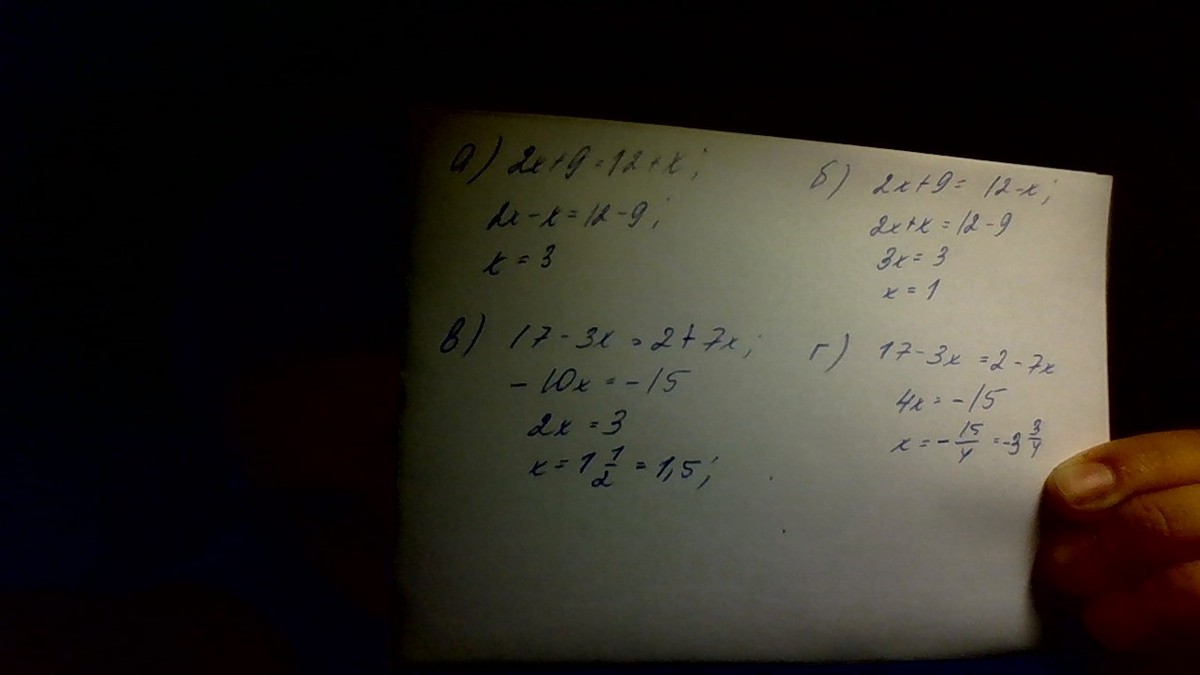 а) 2x+9=12+x;
2x-x=12-9;
x=3
б) 2x+9=12-x;
2x+x=12-9
3x=3
x=1
в) 17-3x=2+7x;
-10x=-15
2x=3
x=1 1/2=1,5;
г) 17-3x=2-7x
4x=-15
x=-15/4=-3 3/4